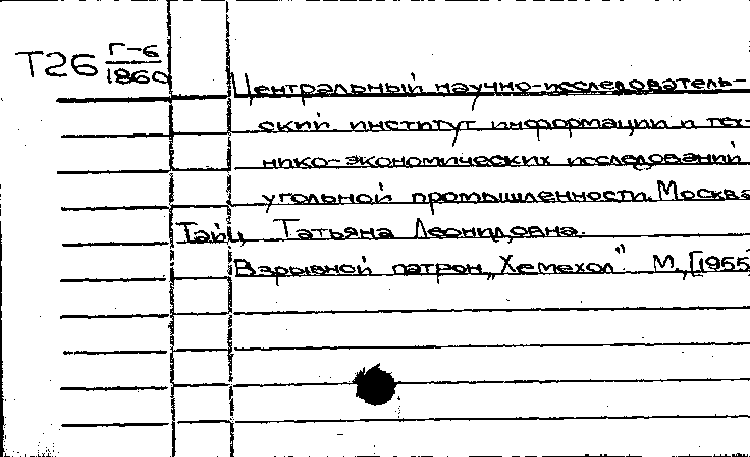 Т26 Г-6/1860
Центральный научно-исследователь-
ский институт информации и тех-
нико-экономических исследований
угольной промышленности. Москва
Тайц Татьяна Леонидовна.
Взрывной патрон „Хемехол". М., [1955]